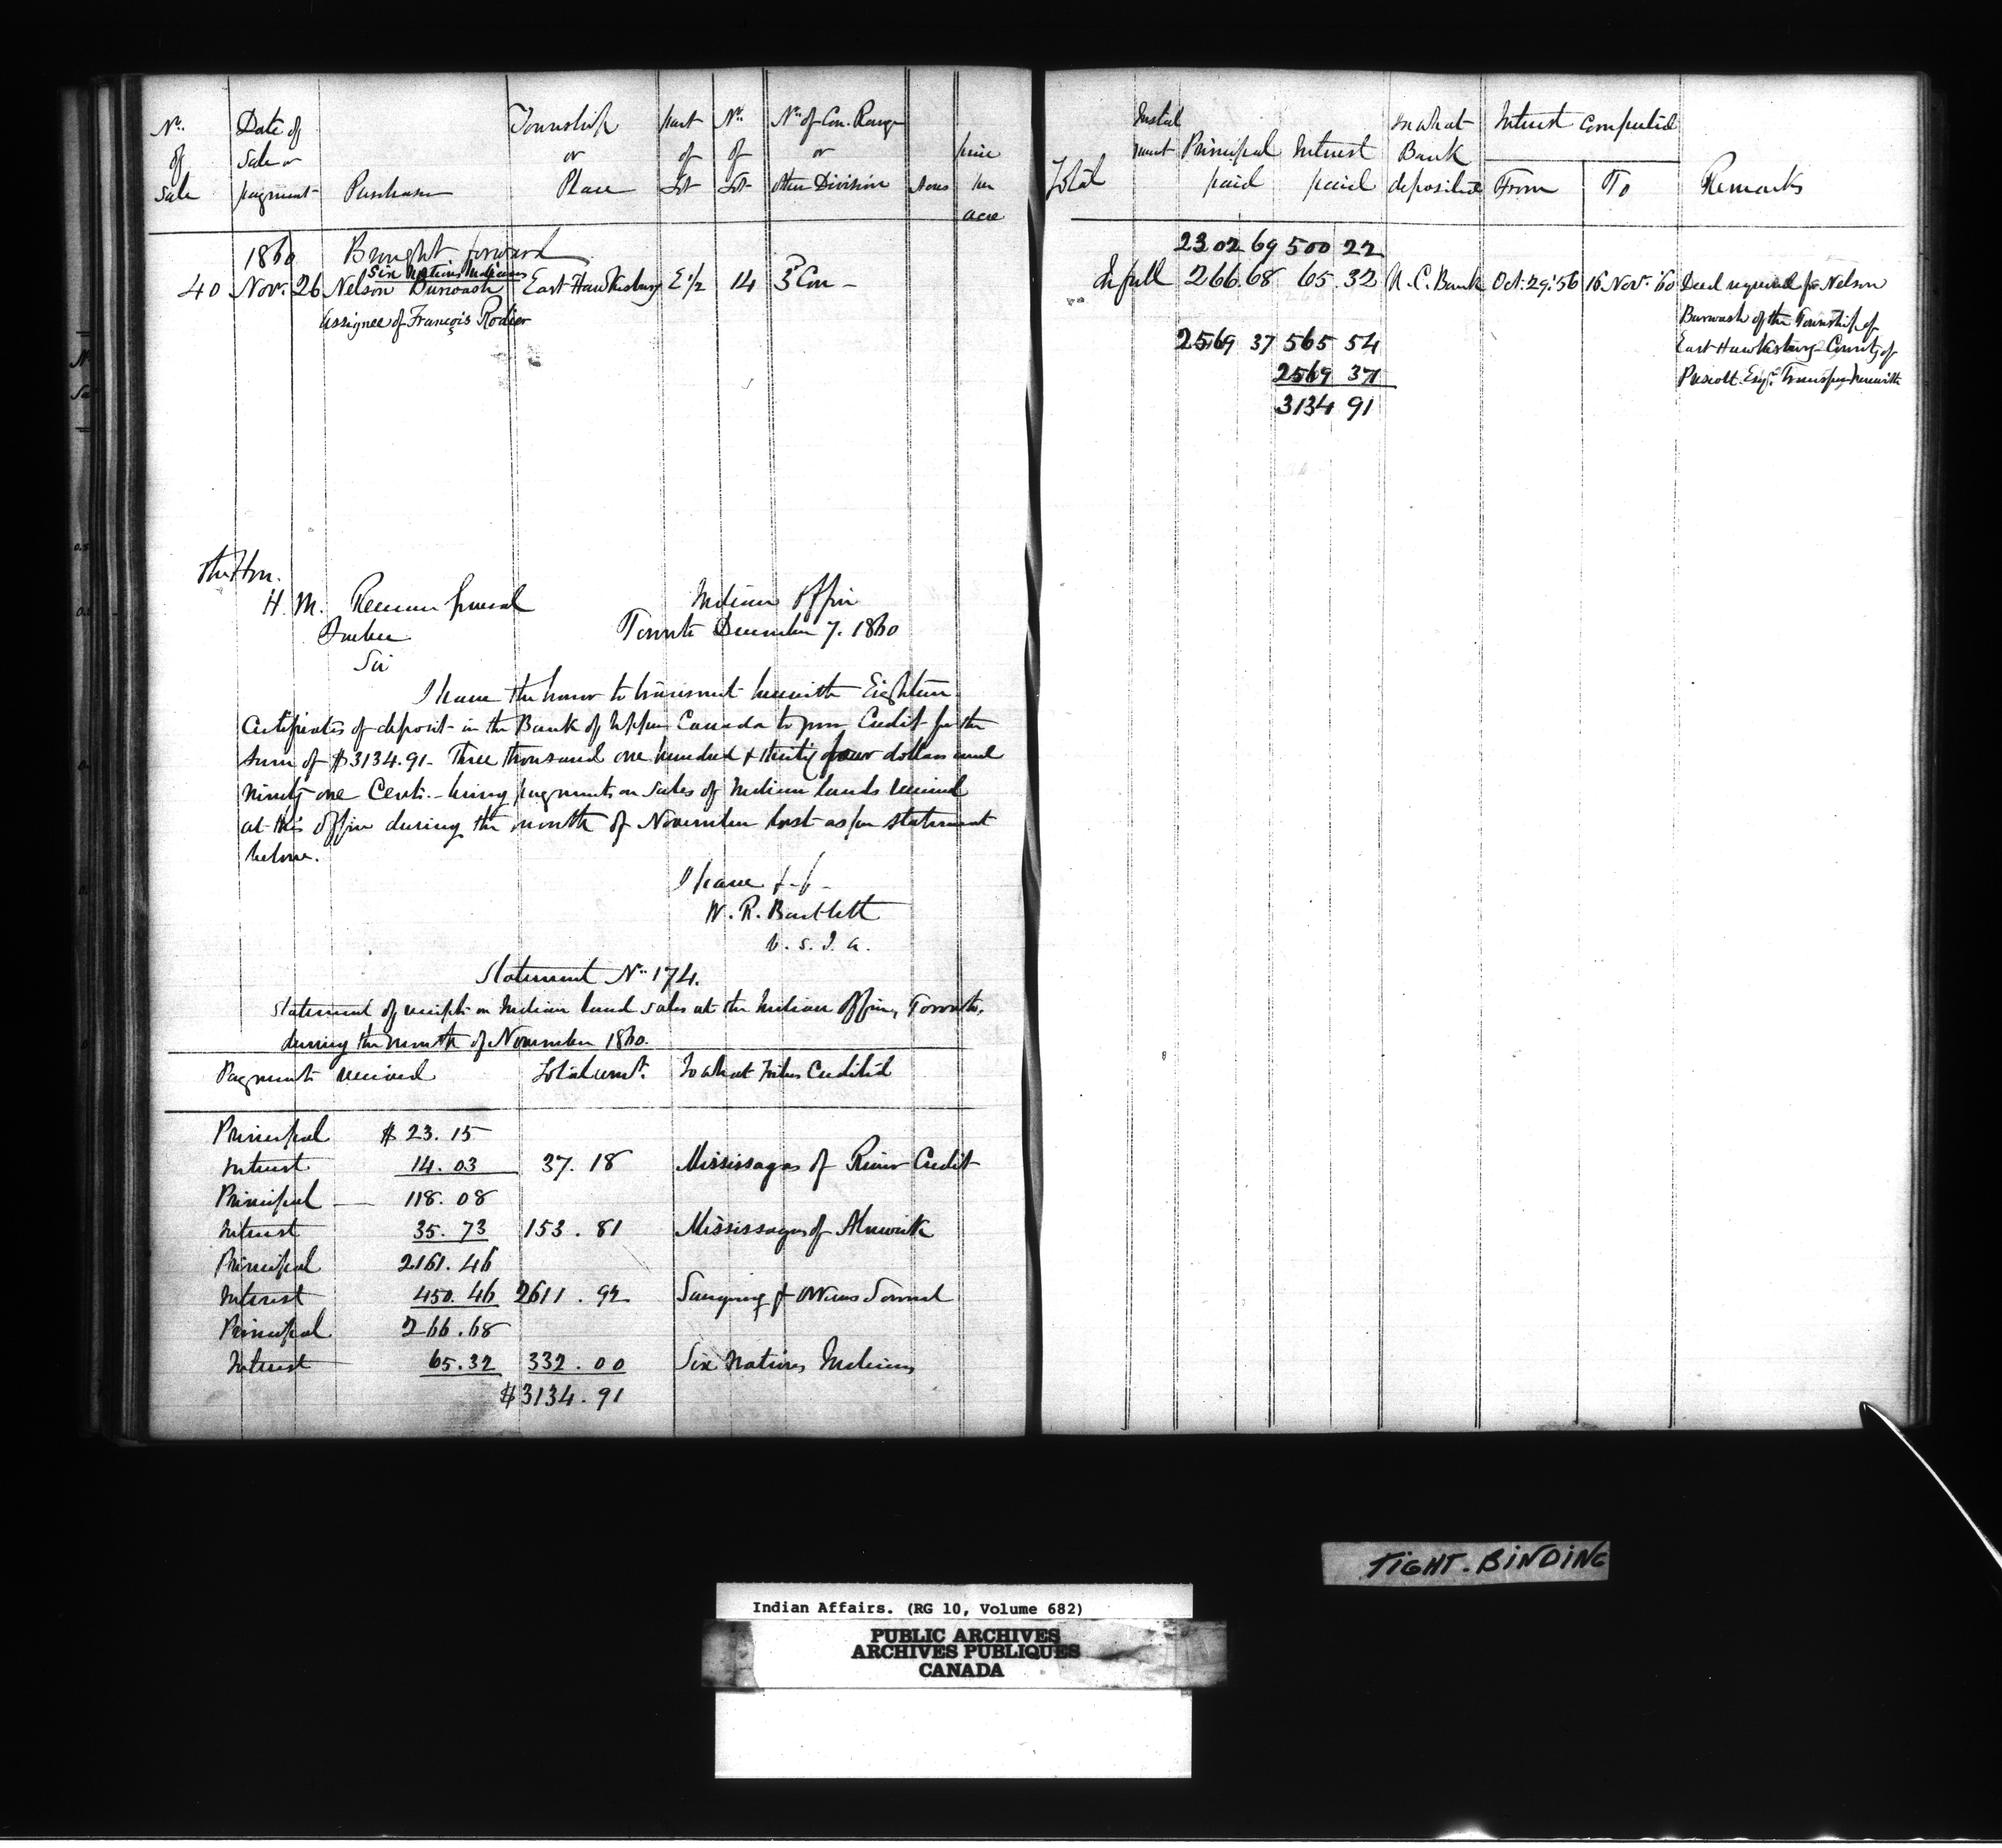 No. Date of Township part No. No. of Con. Range
of Sale or or of of or price
Sale payment Purchaser Place Lot Lot other Division Acres per
acre
1860 Brought forward
Six Nations Indians
40 Nov. 26 Nelson Burwash East Hawkesbury E 1/2 14 3 Con -
Assignee of François Rodier
The Hon.
H. M. Receiver General Indian Office
Quebec Toronto December 7. 1860
Sir
I have the honor to transmit herewith Eighteen
Certificates of deposit in the Bank of Upper Canada to your Credit for the
Sum of $3134.91 - Three thousand one hundred & thirty four dollars and
ninety one Cents - being payments on sales of Indian lands received
at this Office during the month of November last as per statement
below.
I have &c &c
W. R. Bartlett
V. S. I. A.
Statement No. 174.
Statement of receipts on Indian land sales at the Indian Office, Toronto,
during the month of November 1860.
Payments received Total amt. To what Tribes Credited
Principal $ 23.15
Interest 14.03 37.18 Mississagas of River Credit
Principal — 118.08
Interest 35.73 153.81 Mississagas of Alnwick
Principal 2161.46
Interest 450.46 2611.92 Saugeeng & Owens Sound
Principal 266.68
Interest 65.32 332.00 Six Nations Indians
$3134.91
Instal In what Interest Computed
Total ment Principal Interest Bank
paid paid deposited From To Remarks
2302 69 500 22
In full 266.68 65.32 U. C. Bank Oct. 29. '56 16 Nov. '60 Deed required for Nelson
Burwash of the Township of
2569 37 565 54 East Hawkesbury County of
2569 37 Prescott Esqr. Transfer herewith
3134 91
TIGHT-BINDING
Indian Affairs. (RG 10, Volume 682)
PUBLIC ARCHIVES
ARCHIVES PUBLIQUES
CANADA